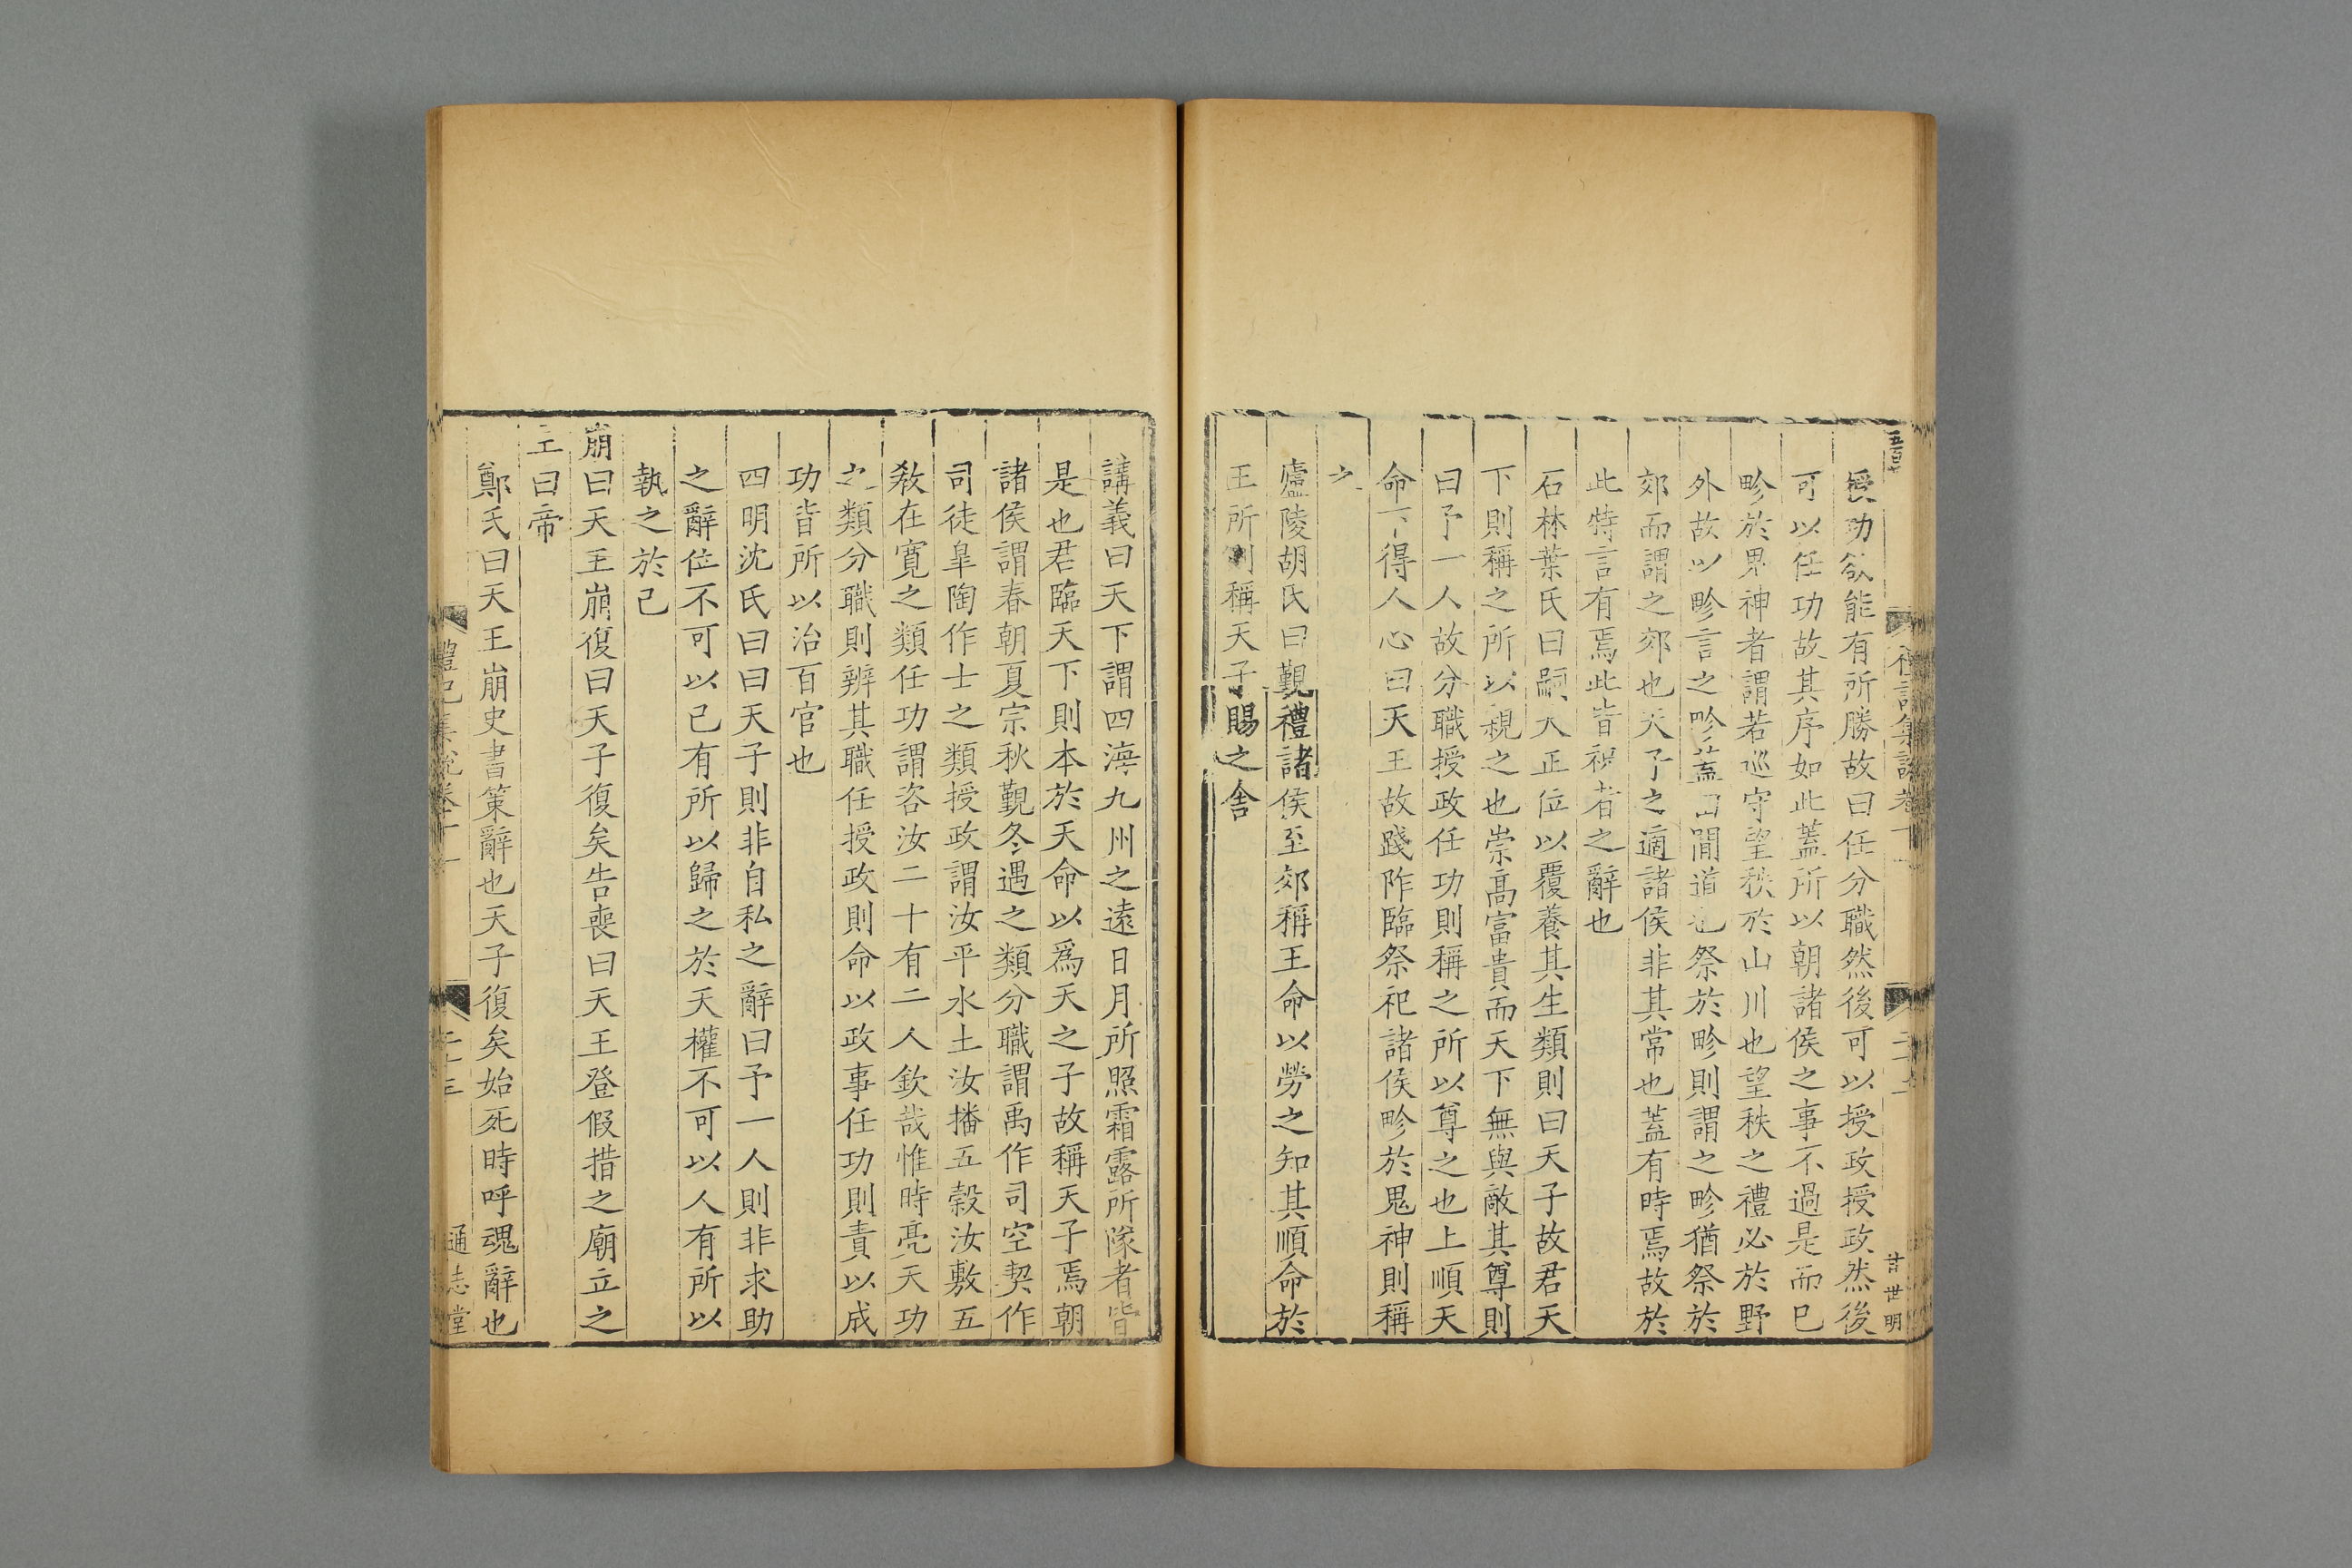 授功欲能有所勝故曰任分職然後可以授政授政然後
可以任功故其序如此蓋所以朝諸侯之事不過是而已
畛於鬼神者謂若巡守望秩於山川也望秩之禮必於野
外故以畛言之畛蓋田間道也祭於畛則謂之畛猶祭於
郊而謂之郊也天子之適諸侯非其常也蓋有時焉故於
此特言有焉此皆祝者之辭也
石林葉氏曰嗣大正位以覆養其生類則曰天子故君天
下則稱之所以親之也崇高富貴而天下無與敵其尊則
曰予一人故分職授政任功則稱之所以尊之也上順天
命下得人心曰天王故踐阼臨祭祀諸侯畛於鬼神則稱
之
廬陵胡氏曰覲禮諸侯至郊稱王命以勞之知其順命於
王所則稱天子賜之舍
講義曰天下謂四海九州之遠日月所照霜露所隊者皆
是也君臨天下則本於天命以爲天之子故稱天子焉朝
諸侯謂春朝夏宗秋覲冬遇之類分職謂禹作司空契作
司徒皐陶作士之類授政謂汝平水土汝播五穀汝敷五
敎在寬之類任功謂咨汝二十有二人欽哉惟時亮天功
之類分職則辨其職任授政則命以政事任功則責以成
功皆所以治百官也
四明沈氏曰曰天子則非自私之辭曰予一人則非求助
之辭位不可以己有所以歸之於天權不可以人有所以
執之於己
崩曰天王崩復曰天子復矣告喪曰天王登假措之廟立之
主曰帝
鄭氏曰天王崩史書策辭也天子復矣始死時呼魂辭也
禮記集說卷十一
通志堂